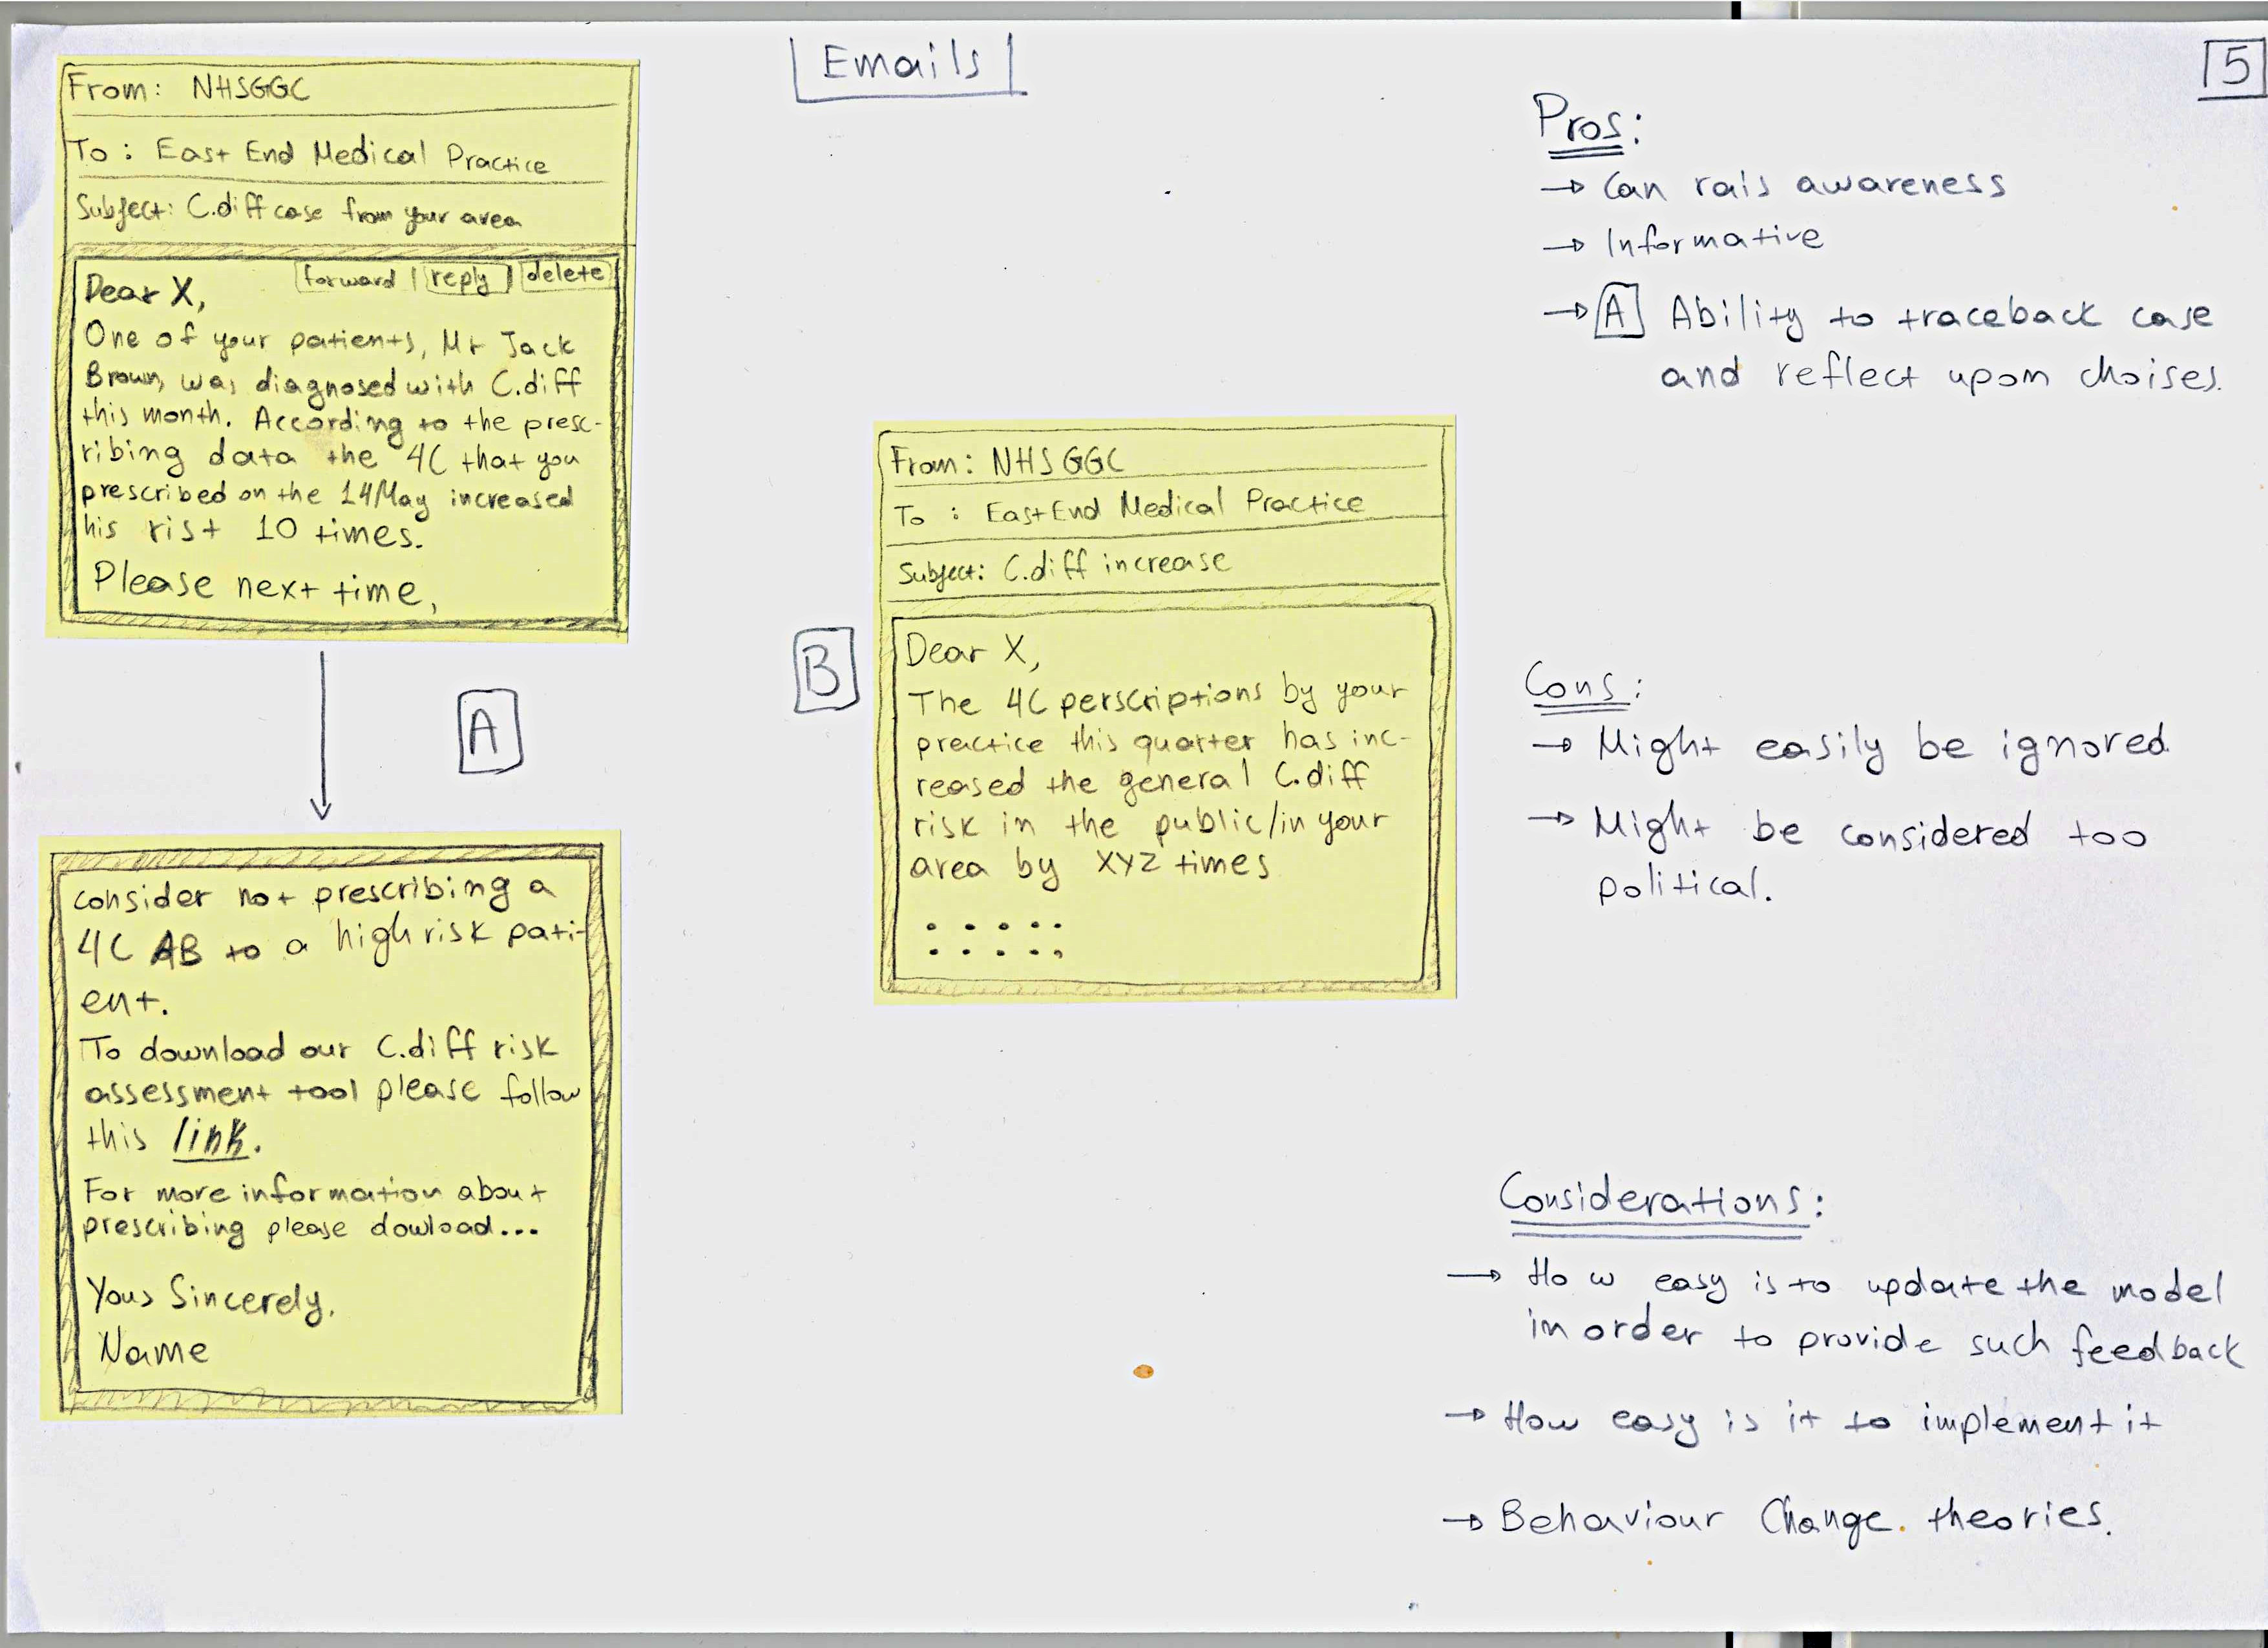 Emails
5
From: NHSGGC
To: East End Medical Practice
Subject: C.diff case from your area
forward | reply | delete
Dear X,
One of your patients, Mr Jack
Brown, was diagnosed with C.diff
this month. According to the presc-
ribing data the 4C that you
prescribed on the 14May increased
his rist 10 times.
Please next time,
A
consider not prescribing a
4C AB to a high risk pati-
ent.
To download our C.diff risk
assessment tool please follow
this link.
For more information about
prescribing please dowload...
Yous Sincerely,
Name
B
From: NHSGGC
To: East End Medical Practice
Subject: C.diff increase
Dear X,
The 4C perscriptions by your
practice this quarter has inc-
reased the general C.diff
risk in the public/in your
area by XYZ times
Pros:
→ Can rais awareness
→ Informative
→ A Ability to traceback case
and reflect upon choises.
Cons:
→ Might easily be ignored
→ Might be considered too
political.
Considerations:
→ How easy is to update the model
in order to provide such feedback
→ How easy is it to implement it
→ Behaviour Change. theories.